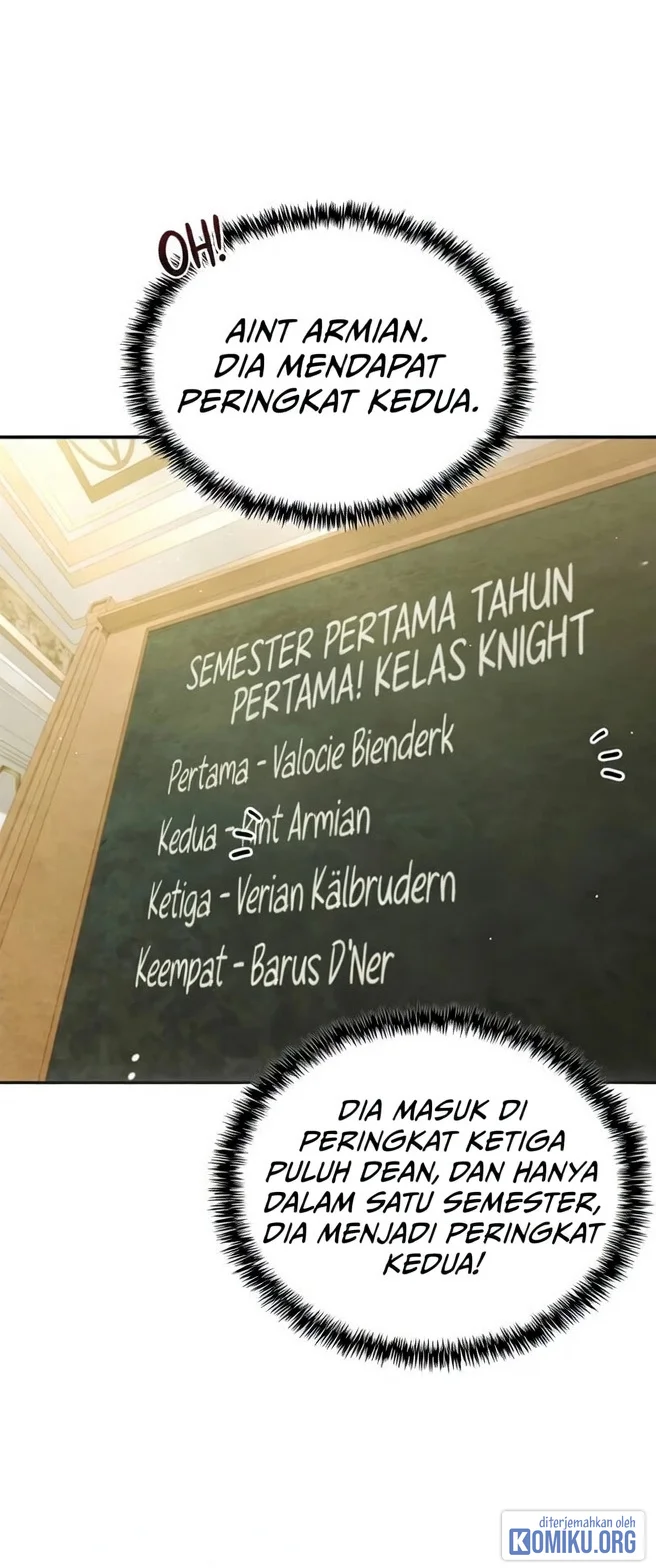 OH!
AINT ARMIAN.
DIA MENDAPAT
PERINGKAT KEDUA.
SEMESTER PERTAMA TAHUN
PERTAMA! KELAS KNIGHT
Pertama - Valocie Bienderk
Kedua - Aint Armian
Ketiga - Verian Kälbrudern
Keempat - Barus D'Ner
DIA MASUK DI
PERINGKAT KETIGA
PULUH DEAN, DAN HANYA
DALAM SATU SEMESTER,
DIA MENJADI PERINGKAT
KEDUA!
diterjemahkan oleh
KOMIKU.ORG